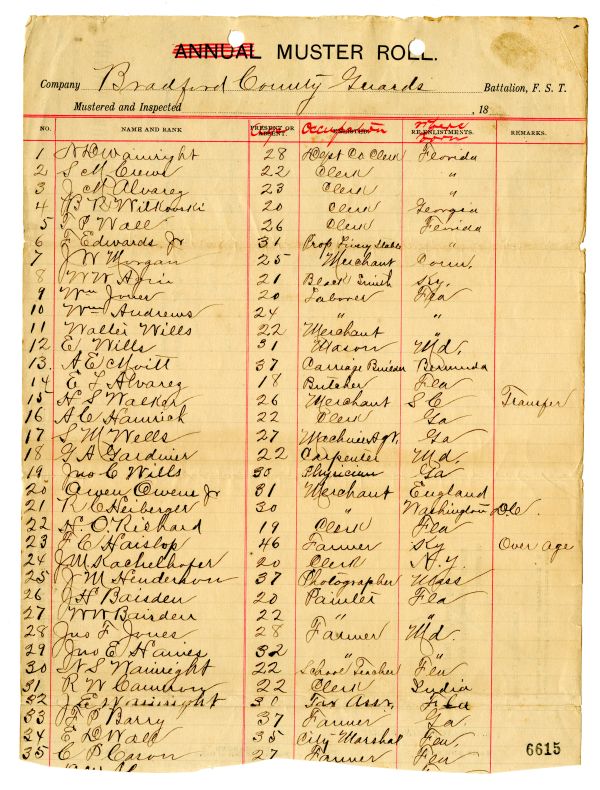 ANNUAL MUSTER ROLL.
Company Bradford County Guards Battalion, F. S. T.
Mustered and Inspected , 18
NO. NAME AND RANK PRESENT OR ABSENT. Age Occupation Where Born RE-ENLISTMENTS. REMARKS.
1 N D Wainright 28 Dept Co Clerk Florida
2 S M Crews 22 Clerk "
3 J M Alvarez 23 Clerk "
4 B R Witkovski 20 Clerk Georgia
5 T P Wall 26 Clerk Florida
6 F Edwards Jr 31 Prop Livery Stable "
7 J W Morgan 25 Merchant Conn.
8 W W 21 Black Smith Ky.
9 Wm Jones 20 Laborer Fla
10 Wm Andrews 24 " "
11 Walter Wills 22 Merchant "
12 E. Wills 31 Mason Md.
13. A E Moitt 37 Carriage Builder Bermuda
14 E L Alvarez 18 Butcher Fla
15 H S Walker 26 Merchant S C Transfer
16 A C Hamrick 22 Clerk Ga
17 S M Wells 27 Ga
18 G A Gardner 22 Carpenter Md
19 Jno C Wills 30 Physician Ga
20 Owen Owens Jr 31 Merchant England
21 R C Heiberger 30 " Washington D.C.
22 H. O. Richard 19 Clerk Fla
23 F E Haislop 46 Farmer Ky Over age
24 J M Kachelhofer 20 Clerk N.Y.
25 J M Henderson 37 Photographer Mass
26 J H Baisden 20 Painter Fla
27 W W Baisden 22 " "
28 Jno F Jones 28 Farmer Md.
29 Jno E Haines 32 " "
30 N S Wainright 22 School Teacher Fla
31 R W Cameron 22 Clerk India
32 J E Wainright 30 Tax Assr. Fla
33 F P Barry 37 Farmer Ga.
34 E D Wall 35 City Marshal Fla.
35 C P Cason 27 Farmer Fla
6615